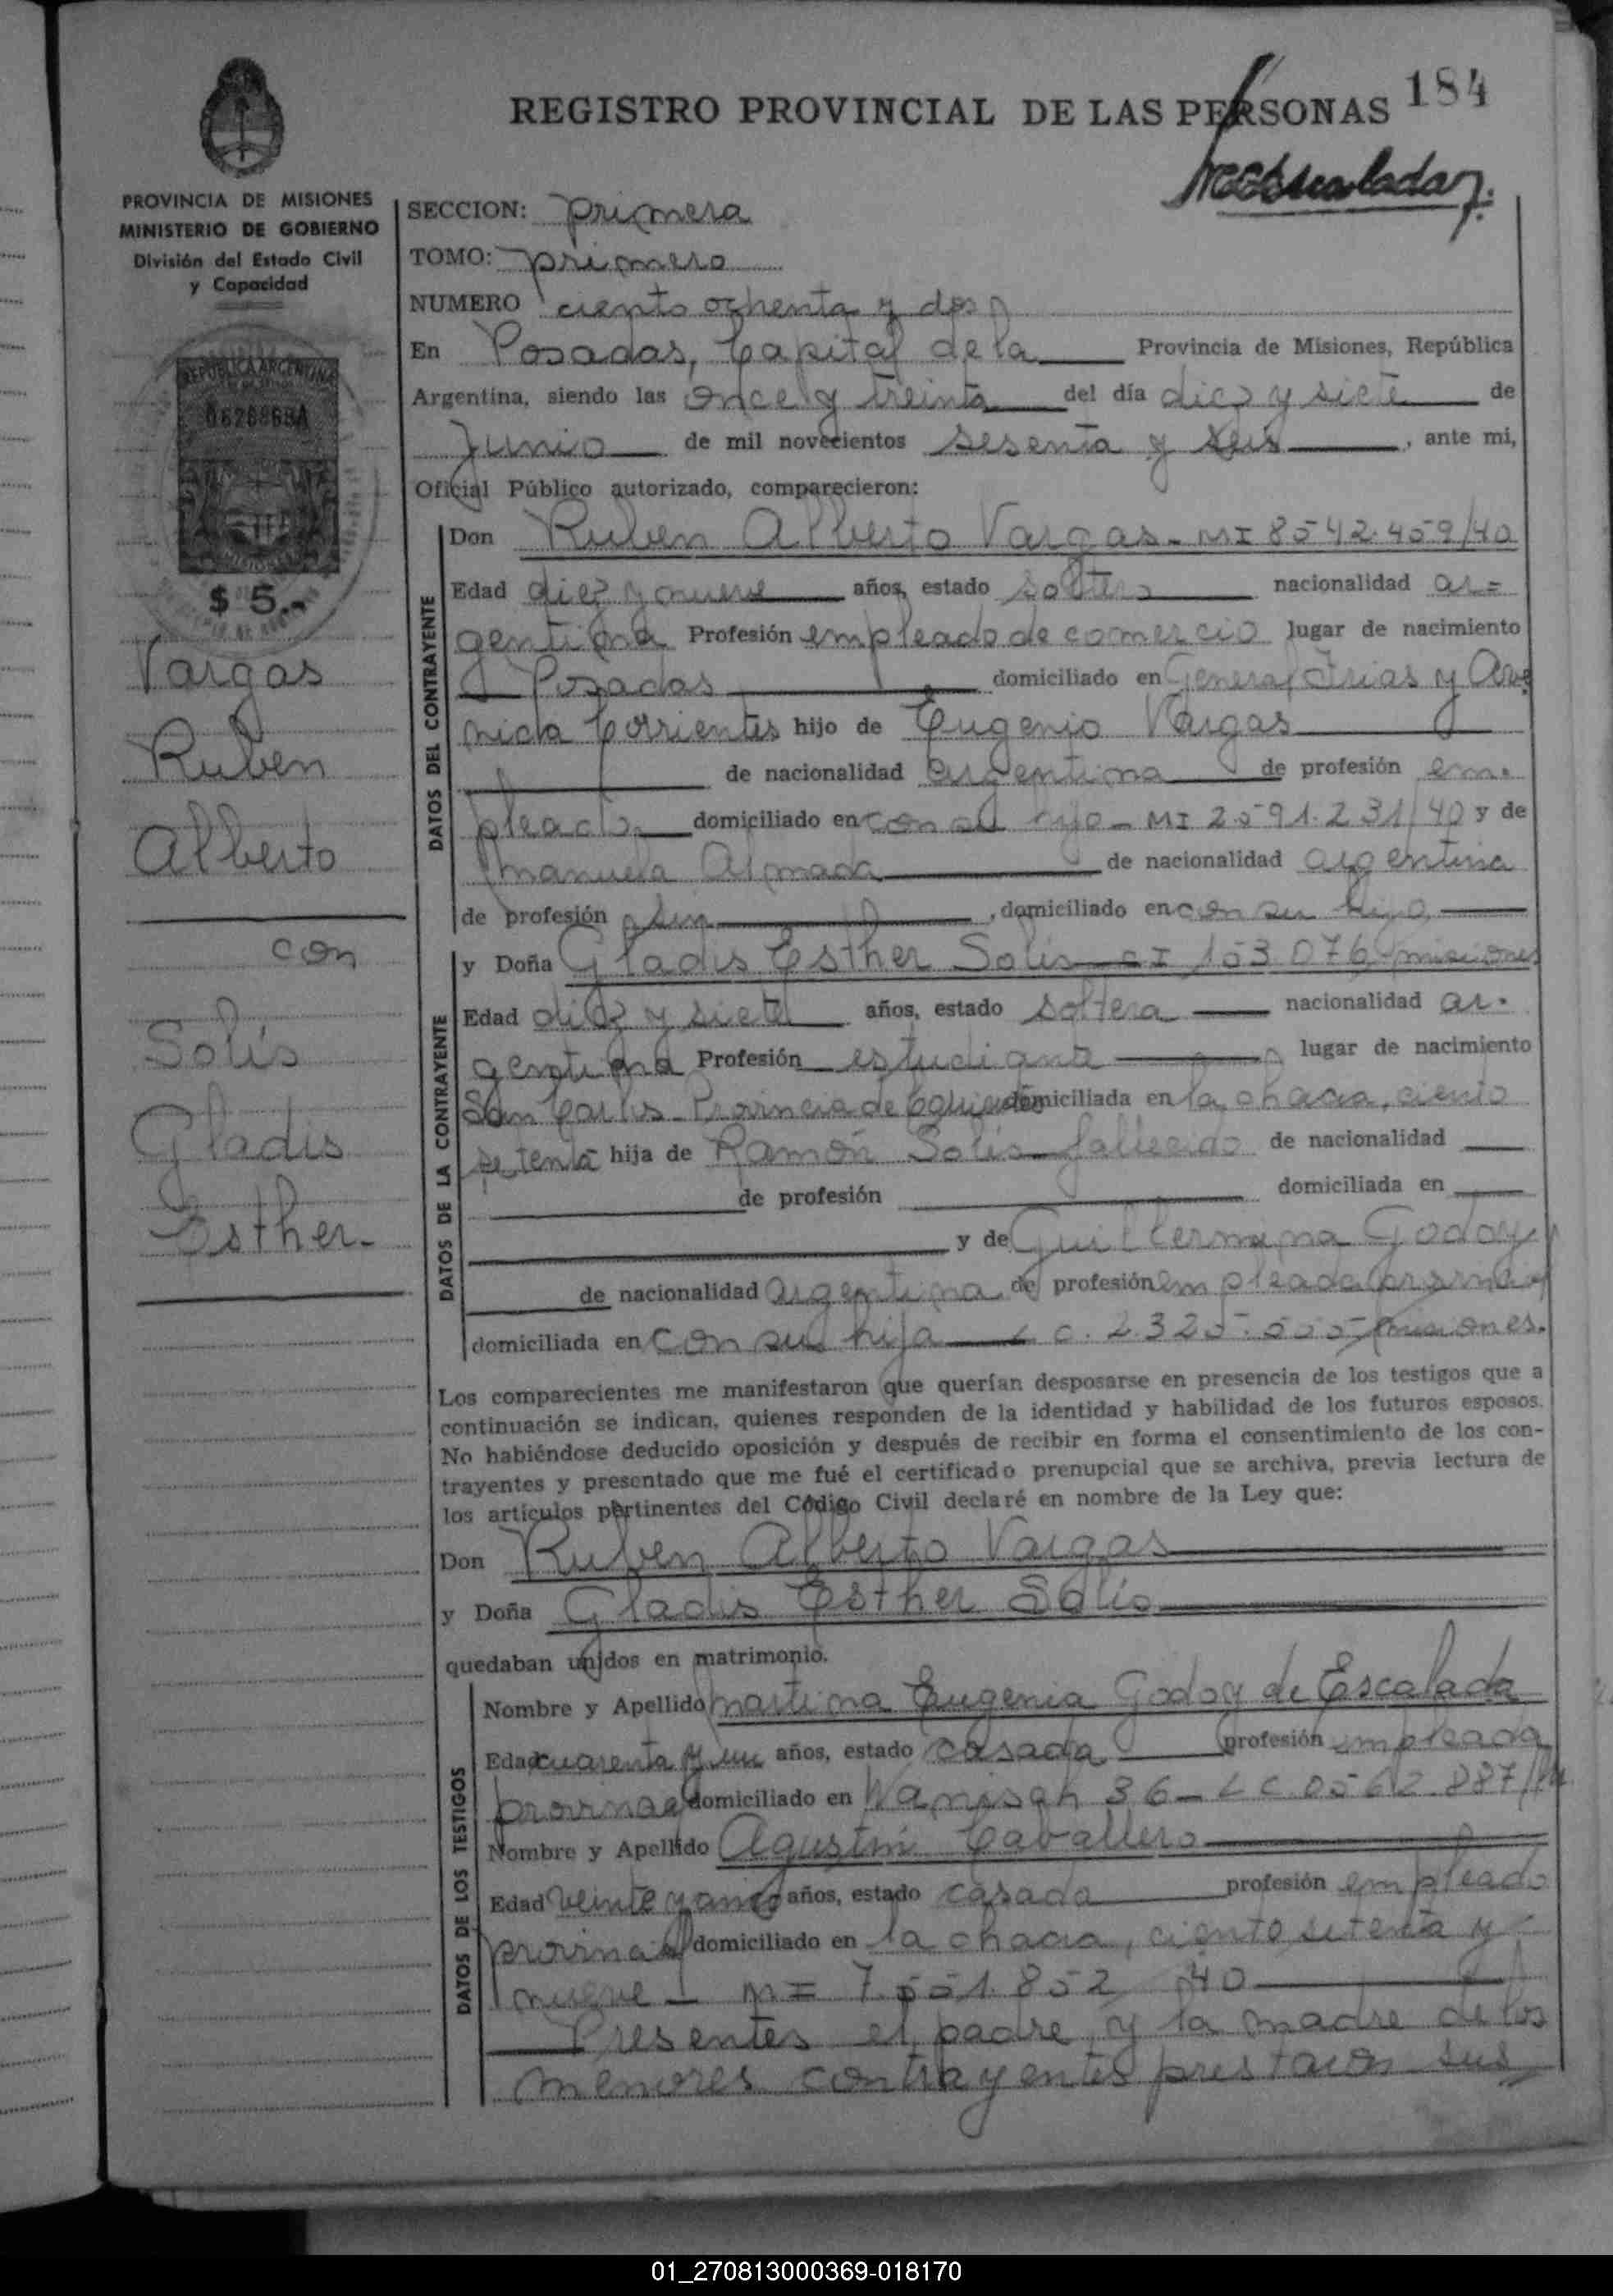 184
REGISTRO PROVINCIAL DE LAS PERSONAS
PROVINCIA DE MISIONES
MINISTERIO DE GOBIERNO
División del Estado Civil
y Capacidad
REPUBLICA ARGENTINA
$ 5.-
Vargas
Ruben
Alberto
con
Solís
Gladis
Esther.-
SECCION: primera
TOMO: primero
NUMERO ciento ochenta y dos
En Posadas, Capital de la Provincia de Misiones, República
Argentina, siendo las once y treinta del día diez y siete de
Junio de mil novecientos sesenta y seis, ante mi,
Oficial Público autorizado, comparecieron:
DATOS DEL CONTRAYENTE
Don Ruben Alberto Vargas - MI 8542.459/40
Edad diez y nueve años, estado soltero nacionalidad ar=
gentina Profesión empleado de comercio lugar de nacimiento
Posadas domiciliado en General Frias y Ave
nida Corrientes hijo de Eugenio Vargas
de nacionalidad argentina de profesión em-
pleado domiciliado en con su hijo - MI 2591.231/40 y de
Manuela Almada de nacionalidad argentina
de profesión sin, domiciliado en con su hijo
DATOS DE LA CONTRAYENTE
y Doña Gladis Esther Solis - CI 153.076 misiones
Edad diez y siete años, estado soltera nacionalidad ar-
gentina Profesión estudiante lugar de nacimiento
San Carlos - Provincia de Corrientes domiciliada en la chacra, ciento
setenta hija de Ramón Solis fallecido de nacionalidad
de profesión domiciliada en
y de Guillermina Godoy
de nacionalidad argentina de profesión empleada
domiciliada en con su hija L C. 2325.555 misiones.
Los comparecientes me manifestaron que querían desposarse en presencia de los testigos que a
continuación se indican, quienes responden de la identidad y habilidad de los futuros esposos.
No habiéndose deducido oposición y después de recibir en forma el consentimiento de los con-
trayentes y presentado que me fué el certificado prenupcial que se archiva, previa lectura de
los artículos pertinentes del Código Civil declaré en nombre de la Ley que:
Don Ruben Alberto Vargas
y Doña Gladis Esther Solis
quedaban unidos en matrimonio.
DATOS DE LOS TESTIGOS
Nombre y Apellido Martina Eugenia Godoy de Escalada
Edad cuarenta y un años, estado casada profesión empleada
domiciliado en 36 - L C 0562.887
Nombre y Apellido Agustin Caballero
Edad veinte y años, estado casado profesión empleado
provincial domiciliado en la chacra, ciento setenta y
nueve - MI 7.551.852 40
Presentes el padre y la madre de los
menores contrayentes prestaron sus
01_270813000369-018170